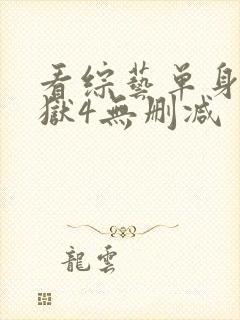 看綜藝單身
獄4無刪減
龍雲